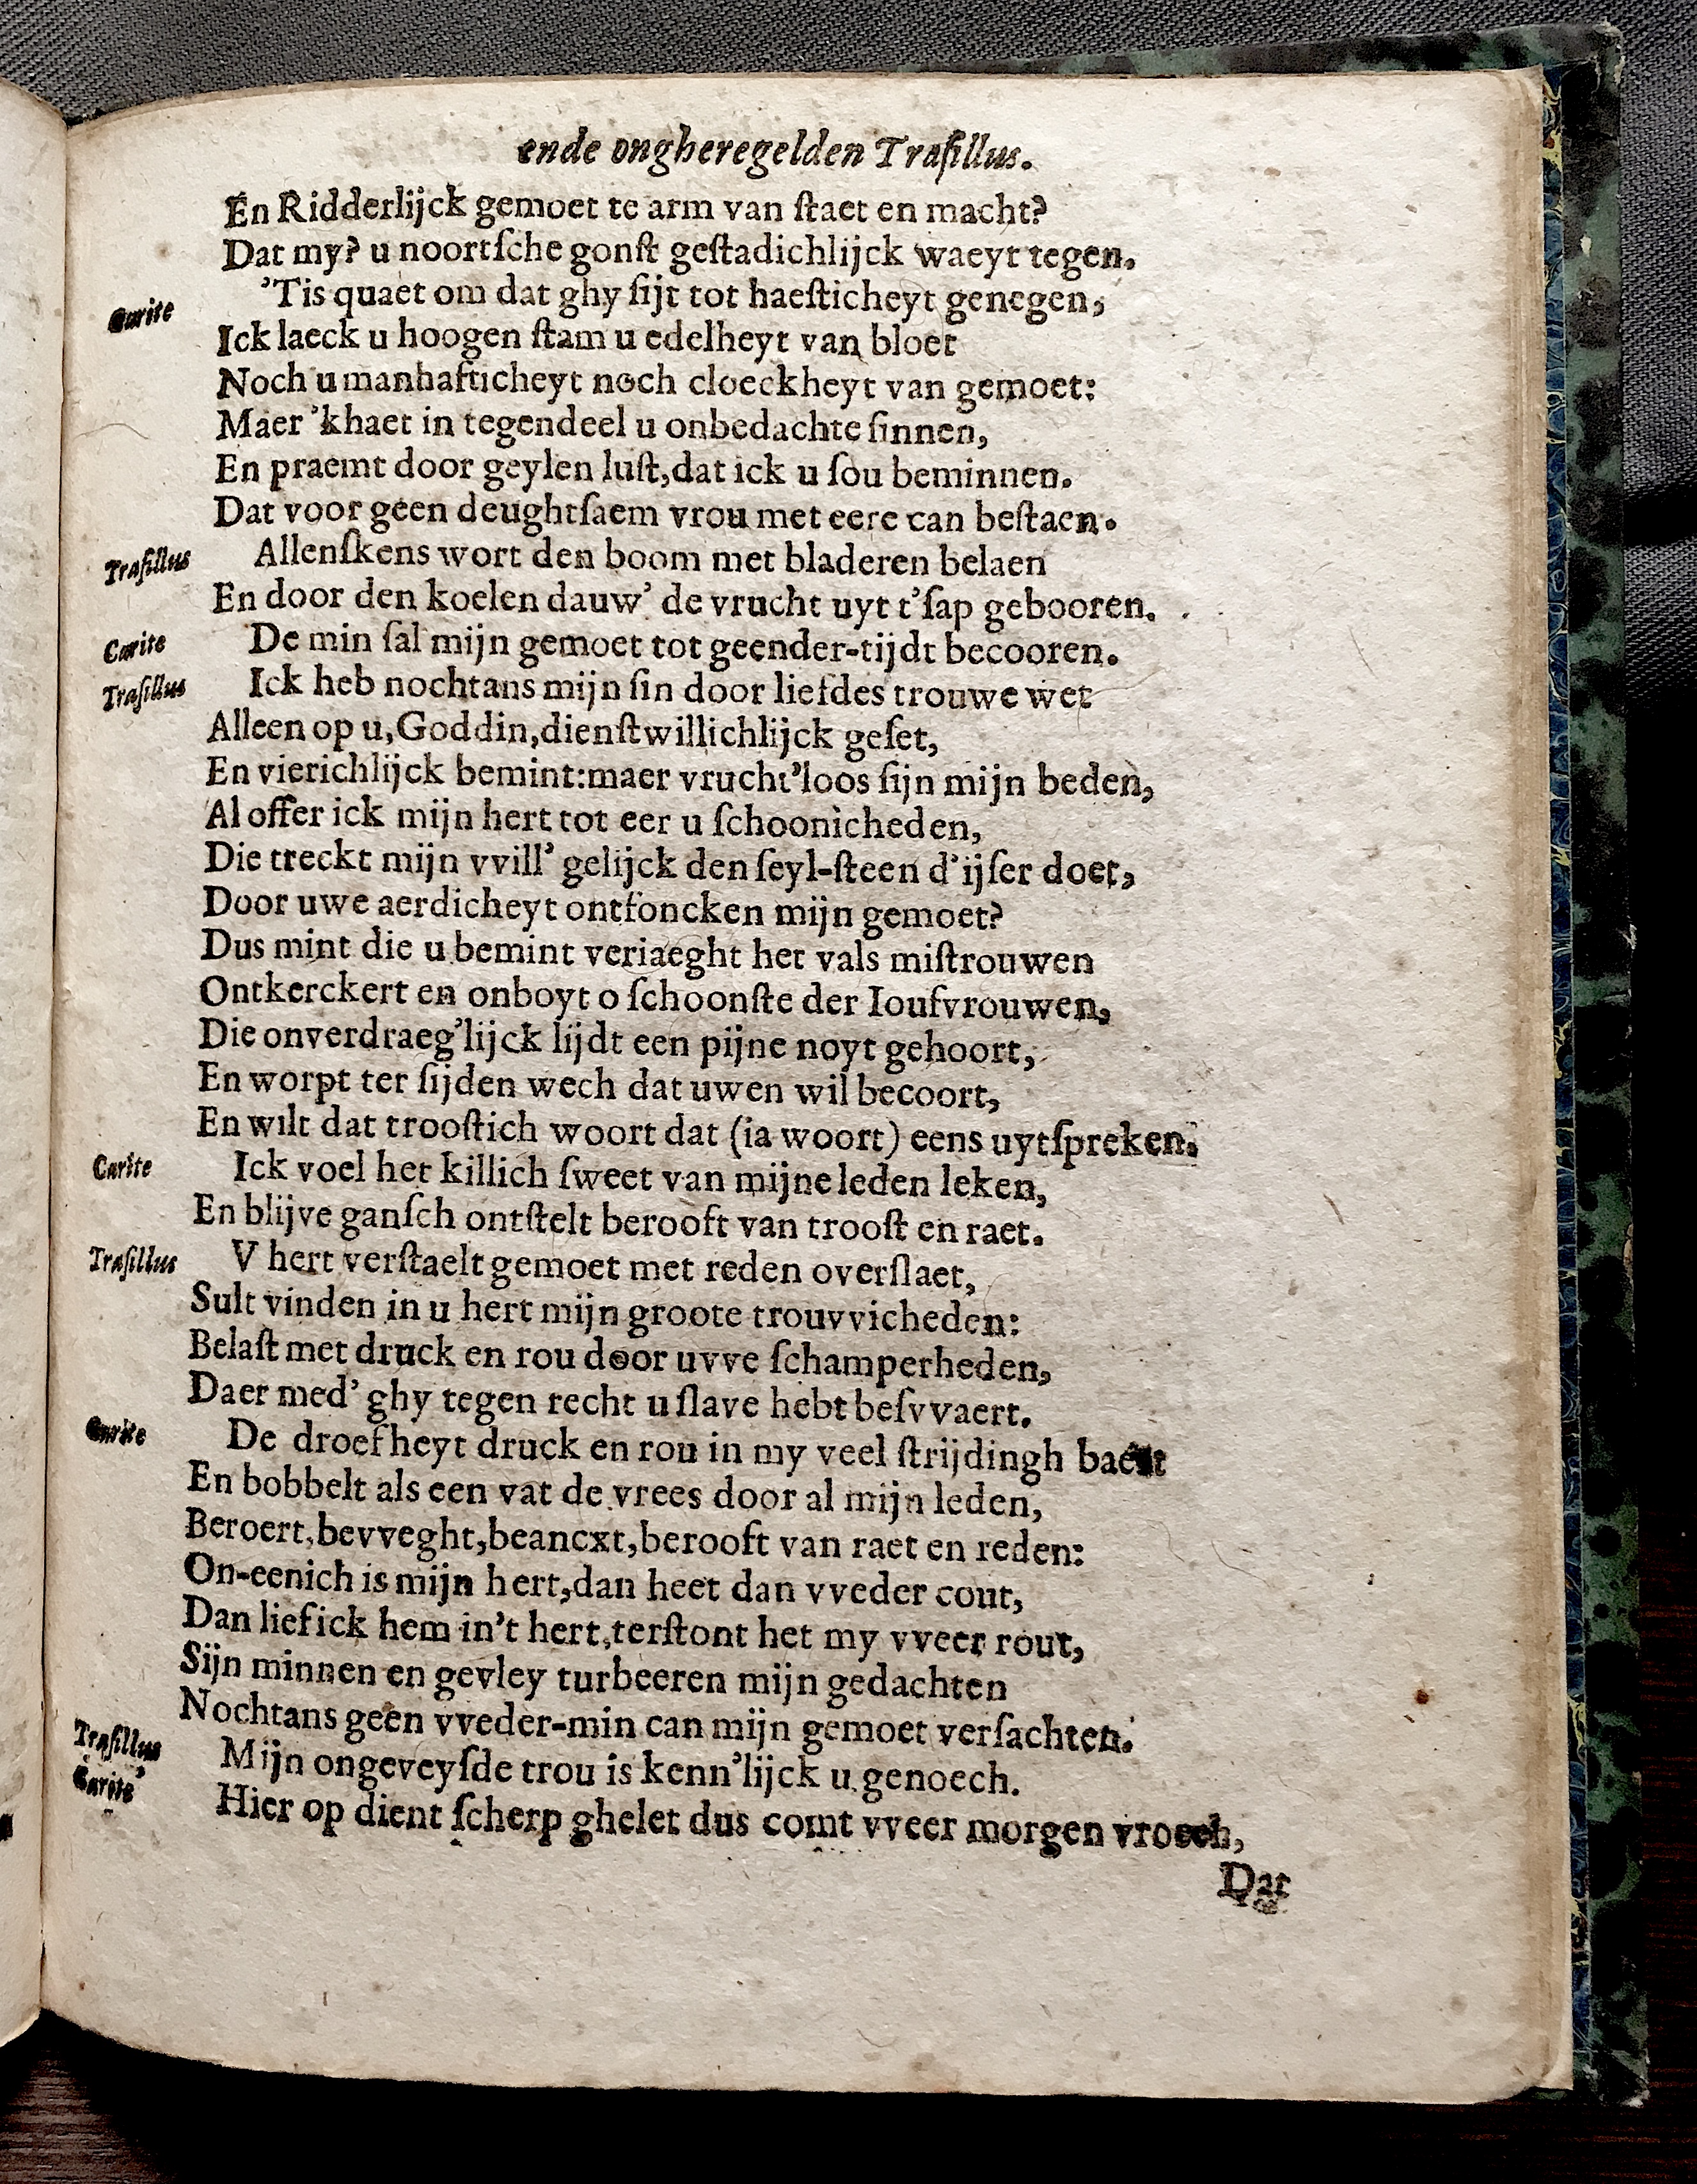 ende ongheregelden Traſillus.
En Ridderlijck gemoet te arm van ſtaet en macht?
Dat my? u noortſche gonſt geſtadichlijck waeyt tegen.
Carite 'Tis quaet om dat ghy ſijt tot haeſticheyt genegen,
Ick laeck u hoogen ſtam u edelheyt van bloet
Noch u manhafticheyt noch cloeckheyt van gemoet:
Maer 'khaet in tegendeel u onbedachte ſinnen,
En praemt door geylen luſt, dat ick u ſou beminnen.
Dat voor geen deughtſaem vrou met eere can beſtaen.
Traſillus Allenſkens wort den boom met bladeren belaen
En door den koelen dauw' de vrucht uyt t'ſap gebooren.
Carite De min ſal mijn gemoet tot geender-tijdt becooren.
Traſillus Ick heb nochtans mijn ſin door liefdes trouwe wet
Alleen op u, Goddin, dienſtwillichlijck geſet,
En vierichlijck bemint: maer vrucht'loos ſijn mijn beden,
Al offer ick mijn hert tot eer u ſchoonicheden,
Die treckt mijn vvill' gelijck den ſeyl-ſteen d'ijſer doet,
Door uwe aerdicheyt ontfoncken mijn gemoet?
Dus mint die u bemint veriaeght het vals miſtrouwen
Ontkerckert en onboyt o ſchoonſte der Ioufvrouwen,
Die onverdraeg'lijck lijdt een pijne noyt gehoort,
En worpt ter ſijden wech dat uwen wil becoort,
En wilt dat trooſtich woort dat (ia woort) eens uytſpreken.
Carite Ick voel het killich ſweet van mijne leden leken,
En blijve ganſch ontſtelt berooft van trooſt en raet.
Traſillus V hert verſtaelt gemoet met reden overſlaet,
Sult vinden in u hert mijn groote trouvvicheden:
Belaſt met druck en rou door uvve ſchamperheden,
Daer med' ghy tegen recht u ſlave hebt beſvvaert.
Carite De droefheyt druck en rou in my veel ſtrijdingh
En bobbelt als een vat de vrees door al mijn leden,
Beroert, bevveght, beancxt, berooft van raet en reden:
On-eenich is mijn hert, dan heet dan vveder cout,
Dan lief ick hem in't hert, terſtont het my vveer rout,
Sijn minnen en gevley turbeeren mijn gedachten
Nochtans geen vveder-min can mijn gemoet verſachten.
Traſillus Mijn ongeveyſde trou is kenn'lijck u genoech.
Carite Hier op dient ſcherp ghelet dus comt vveer morgen vroech,
Dat